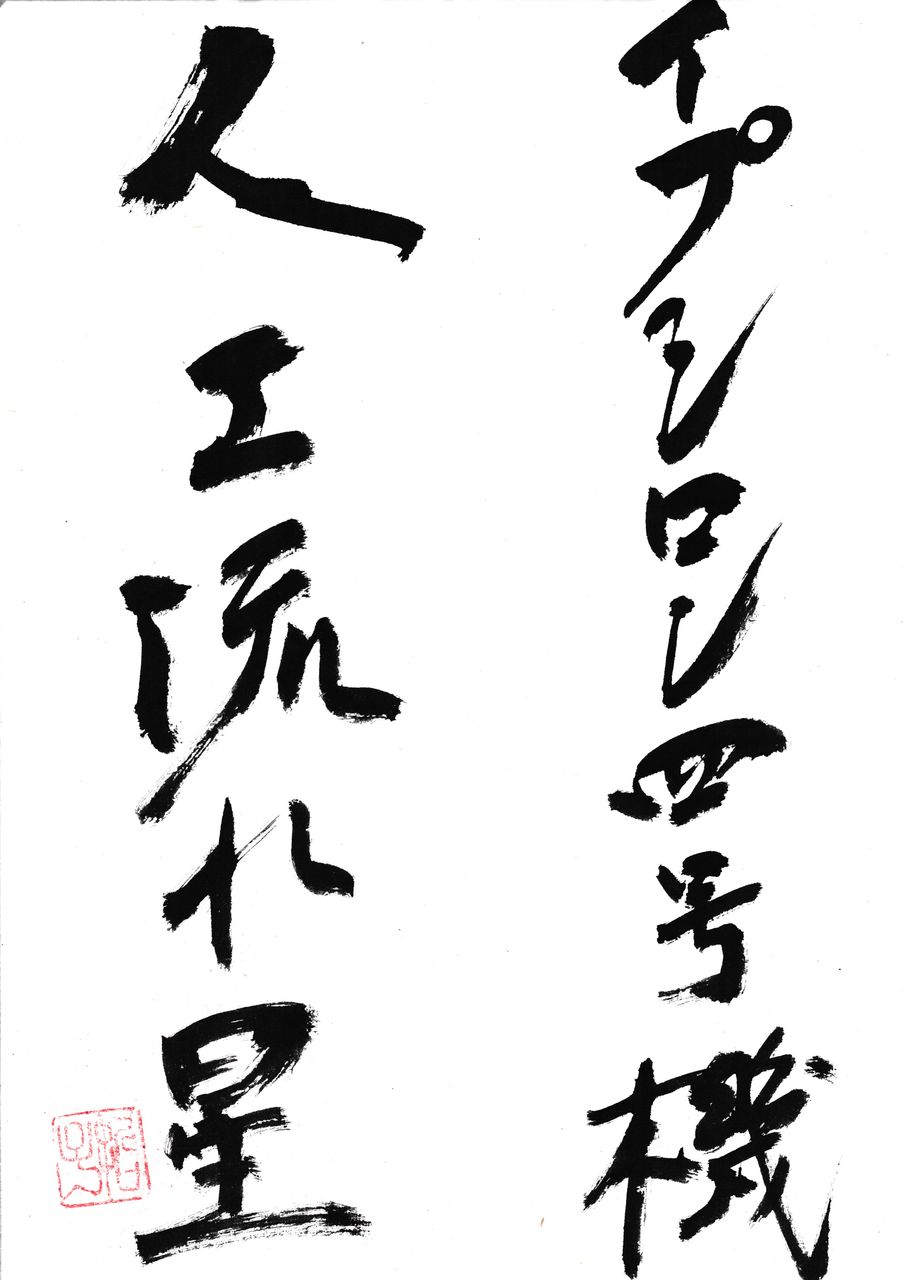 イプシロン四号機
人工流れ星